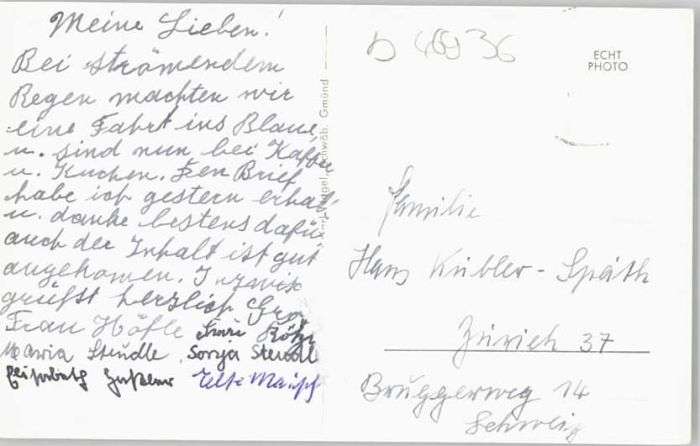 Meine Lieben!
Bei strömendem
Regen machten wir
eine Fahrt ins Blaue,
u. sind nun bei Kaffee
u. Kuchen. Den Brief
habe ich gestern erhal.
u. danke bestens dafür
auch der Inhalt ist gut
angekomen. Inzwis
grüsst herzlich
Frau Höfle
Maria Steidle Sonja Steidle
Elisabeth Else
Gmünd
D 46936
ECHT
PHOTO
Familie
Hans Kübler-Späth
Zürich 37
Bruggerweg 14
Schweiz